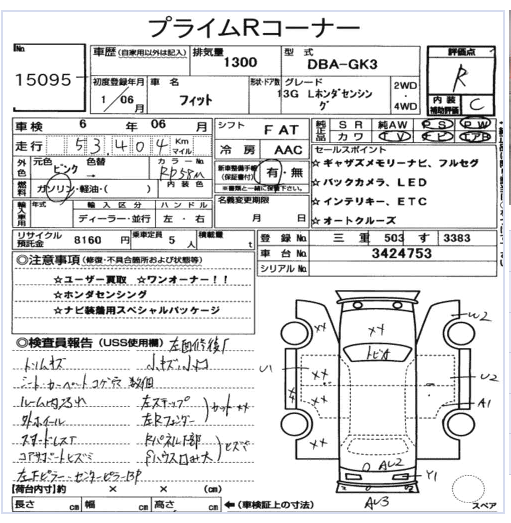 プライムRコーナー
No. 15095
車歴(自家用以外は記入) 排気量 1300 型式 DBA-GK3
評価点 R
初度登録年月 1/06月 車名 フィット 形状・ドア数 グレード 13G Lホンダセンシング 2WD・4WD
内装補助評価 C
車検 6年06月 シフト F AT 純正品 SR 純AW PS PW
カワ TV ナビ エアB
走行 53,404 Km マイル 冷房 AAC セールスポイント
外色 元色 ピンク→ 色替 カラーNo. RP58M 新車整備手帳(保証書付) 有・無
※書類と一緒に保管下さい。
☆ギャザズメモリーナビ、フルセグ
燃料 ガソリン・軽油・( ) 内装色
☆バックカメラ、LED
輸入車用 年式 輸入区分 ハンドル 名義変更期限
ディーラー・並行 左・右 月 日
☆インテリキー、ETC
☆オートクルーズ
リサイクル預託金 8160円 乗車定員 5人 積載量 t
登録No. 三重 503 す 3383
車台No. 3424753
シリアルNo.
◎注意事項(修復・不具合箇所および状態等)
☆ユーザー買取 ☆ワンオーナー!!
☆ホンダセンシング
☆ナビ装着用スペシャルパッケージ
◎検査員報告(USS使用欄) 左面修復
トリムキズ 小キズ、小凹
シート・カーペットコゲ穴 数個
ルーム内汚れ 左ステップ
外ホイール 左Rフェンダー カット××
Rパネル下部
左Fピラー、センターピラーBP
トビA
××
W2
U1
U2
A1
AU2
Y1
AU3
【荷台内寸】約 × × (cm)
長さ cm 幅 cm 高さ cm ←(車検証上の寸法)
スペア